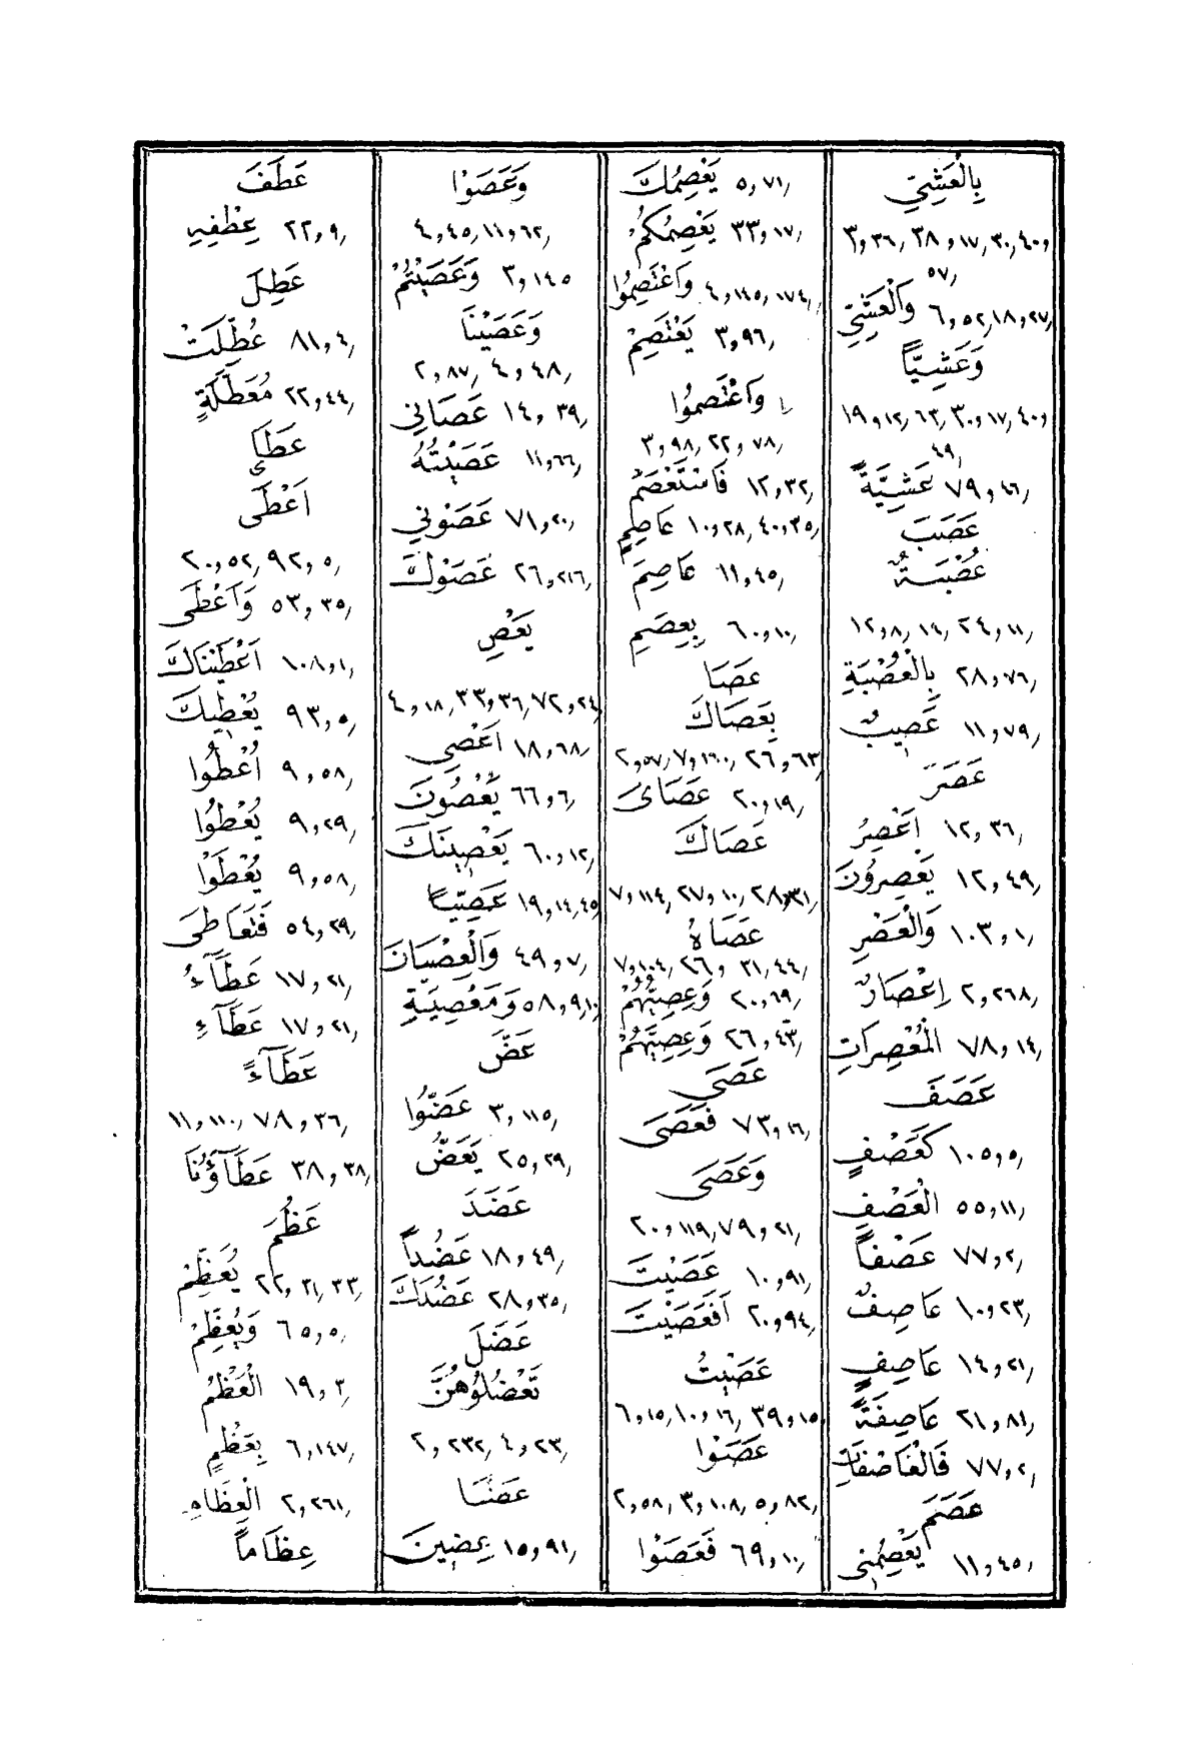 بِالْعَشِيِّ
٣,٣٦, ٣٨,١٧, ٣٠, ٤٠,
٥٧,
٦,٥٢, ١٨,٢٧, وَالْعَشِيِّ
وَعَشِيًّا
١٩,١٢, ٦٣, ٣٠,١٧, ٤٠,
٤٩,
٧٩,٤٦, عَشِيَّةً
عَصَبَ
عُصْبَةٌ
١٢,٨, ١٤, ٢٤,١١,
٢٨,٧٦, بِالْعُصْبَةِ
١١,٧٩, عَصِيبٌ
عَصَرَ
١٢,٣٦, أَعْصِرُ
١٢,٤٩, يَعْصِرُونَ
١٠٣,١, وَالْعَصْرِ
٢,٢٦٨, إِعْصَارٌ
٧٨,١٤, الْمُعْصِرَاتِ
عَصَفَ
١٠٥,٥, كَعَصْفٍ
٥٥,١١, الْعَصْفِ
٧٧,٢, عَصْفًا
١٠,٢٣, عَاصِفٌ
١٤,٢١, عَاصِفٍ
٢١,٨١, عَاصِفَةً
٧٧,٢, فَالْعَاصِفَاتِ
عَصَمَ
١١,٤٥, يَعْصِمُنِي
٥,٧١, يَعْصِمُكَ
٣٣,١٧, يَعْصِمُكُمْ
٤,١٤٥, ١٧٤, وَاعْتَصِمُوا
٣,٩٦, يَعْتَصِمْ
وَاعْتَصِمُوا
٣,٩٨, ٢٢,٧٨,
١٢,٣٢, فَاسْتَعْصَمَ
١٠,٢٨, ٤٠,٣٥, عَاصِمٍ
١١,٤٥, عَاصِمَ
٦٠,١٠, بِعِصَمِ
عَصَا
بِعَصَاكَ
٢,٥٧, ٧,١٦٠, ٢٦,٦٣,
٢٠,١٩, عَصَايَ
عَصَاكَ
٧,١١٤, ٢٧,١٠, ٢٨,٣١,
عَصَاهُ
٧,١٠٤, ٢٦, ٣١,٤٤,
٢٠,٦٩, وَعِصِيُّهُمْ
٢٦,٤٣, وَعِصِيَّهُمْ
عَصَى
٧٣,١٦, فَعَصَى
وَعَصَى
٢٠,١١٩, ٧٩,٢١,
١٠,٩١, عَصَيْتَ
٢٠,٩٤, أَفَعَصَيْتَ
عَصَيْتُ
٦,١٥, ١٠,١٦, ٣٩,١٥
عَصَوْا
٢,٥٨, ٣,١٠٨, ٥,٨٢,
٦٩,١٠, فَعَصَوْا
وَعَصَوْا
٤,٤٥, ١١,٦٢,
٣,١٤٥ وَعَصَيْتُمْ
وَعَصَيْنَا
٢,٨٧, ٤,٤٨,
١٤,٣٩, عَصَانِي
١١,٦٦, عَصَيْتُهُ
٧١,٢٠, عَصَوْنِي
٢٦,٢١٦, عَصَوْكَ
يَعْصِ
٤,١٨, ٣٣,٣٦, ٧٢,٢٤,
١٨,٦٨, أَعْصِي
٦٦,٦, يَعْصُونَ
٦٠,١٢, يَعْصِينَكَ
١٩,١٤, ٤٥, عَصِيًّا
٤٩,٧, وَالْعِصْيَانَ
٥٨,٩, ١٠, وَمَعْصِيَةِ
عَضَّ
٣,١١٥, عَضُّوا
٢٥,٢٩, يَعَضُّ
عَضَدَ
١٨,٤٩, عَضُدًا
٢٨,٣٥, عَضُدَكَ
عَضَلَ
تَعْضُلُوهُنَّ
٢,٢٣٢, ٤,٢٣,
عَضَنَا
١٥,٩١, عِضِينَ
عَطَفَ
٢٢,٩, عِطْفِهِ
عَطِلَ
٨١,٤, عُطِّلَتْ
٢٢,٤٤, مُعَطَّلَةٍ
عَطَا
ى
أَعْطَى
٢٠,٥٢, ٩٢,٥,
٥٣,٣٥, وَأَعْطَى
١٠٨,١, أَعْطَيْنَاكَ
٩٣,٥, يُعْطِيكَ
٩,٥٨, أُعْطُوا
٩,٢٩, يُعْطُوا
٩,٥٨, يُعْطَوْا
٥٤,٢٩, فَتَعَاطَى
١٧,٢١, عَطَآءُ
١٧,٢١, عَطَآءِ
عَطَآءً
١١,١١٠, ٧٨,٣٦,
٣٨,٣٨, عَطَآؤُنَا
عَظُمَ
٢٢,٣١, ٣٣, يُعَظِّمْ
٦٥,٥, وَيُعْظِمْ
١٩,٣, الْعَظْمُ
٦,١٤٧, بِعَظْمٍ
٢,٢٦١, الْعِظَامِ
عِظَامًا